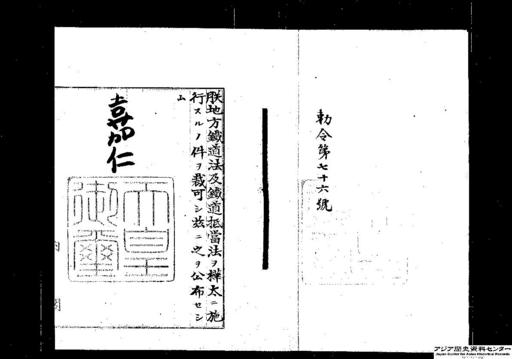 勅令第七十六號
朕地方鐵道法及鐵道抵當法ヲ樺太ニ施
行スルノ件ヲ裁可シ茲ニ之ヲ公布セシ
ム
嘉仁
天皇
御璽
内
閣
アジア歴史資料センター
Japan Center for Asian Historical Records